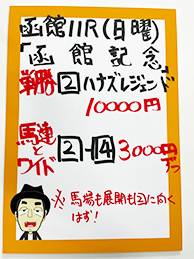 函館11R(日曜)
「函館記念」
単勝②ハナズレジェンド
10000円
馬連とワイド ②-⑭ 3000円ずつ
※馬場も展開も②に向く
はず!